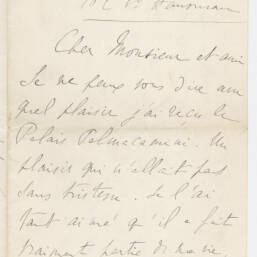 Cher Monsieur et ami
Je ne peux vous dire avec
quel plaisir j'ai reçu le
Palais Palmacamini. Un
plaisir qui n'allait pas
sans tristesse. Je l'ai
tant aimé qu'il a fait
vraiment partie de ma vie,